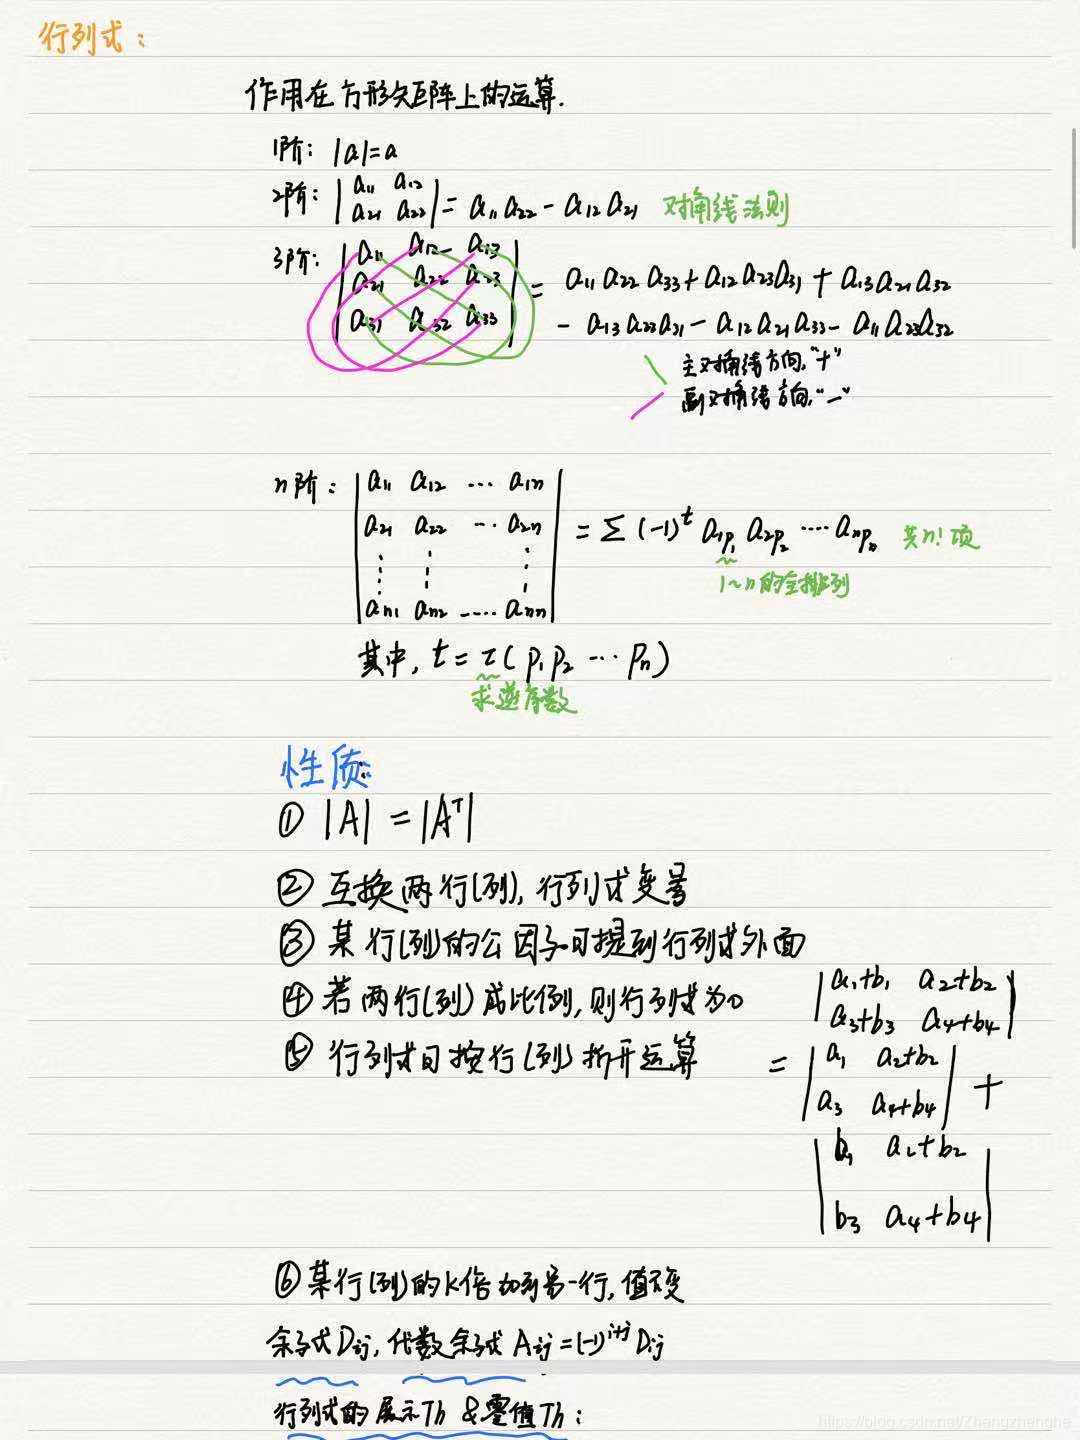 行列式：
作用在方形矩阵上的运算.
1阶: |a|=a
2阶: |a₁₁ a₁₂
a₂₁ a₂₂| = a₁₁a₂₂ - a₁₂a₂₁ 对角线法则
3阶: |a₁₁ a₁₂ a₁₃
a₂₁ a₂₂ a₂₃
a₃₁ a₃₂ a₃₃| = a₁₁a₂₂a₃₃ + a₁₂a₂₃a₃₁ + a₁₃a₂₁a₃₂
- a₁₃a₂₂a₃₁ - a₁₂a₂₁a₃₃ - a₁₁a₂₃a₃₂
主对角线方向,"+"
副对角线方向,"-"
n阶: |a₁₁ a₁₂ ⋯ a₁ₙ
a₂₁ a₂₂ ⋯ a₂ₙ
⋮ ⋮ ⋮
aₙ₁ aₙ₂ ⋯ aₙₙ| = Σ (-1)ᵗ a₁p₁ a₂p₂ ⋯ aₙpₙ 共n!项
1~n的全排列
其中, t = τ(p₁p₂⋯pₙ)
求逆序数
性质:
① |A| = |Aᵀ|
② 互换两行(列), 行列式变号
③ 某行(列)的公因子可提到行列式外面
④ 若两行(列)成比例, 则行列式为0
⑤ 行列式可按行(列)拆开运算
|a₁+b₁ a₂+b₂
a₃+b₃ a₄+b₄|
= |a₁ a₂+b₂
a₃ a₄+b₄| +
|b₁ a₂+b₂
b₃ a₄+b₄|
⑥ 某行(列)的k倍加到另一行, 值不变
余子式Dᵢⱼ, 代数余子式 Aᵢⱼ=(-1)ⁱ⁺ʲDᵢⱼ
行列式的展示Th &零值Th:
https://blog.csdn.net/Zhangzhenghe